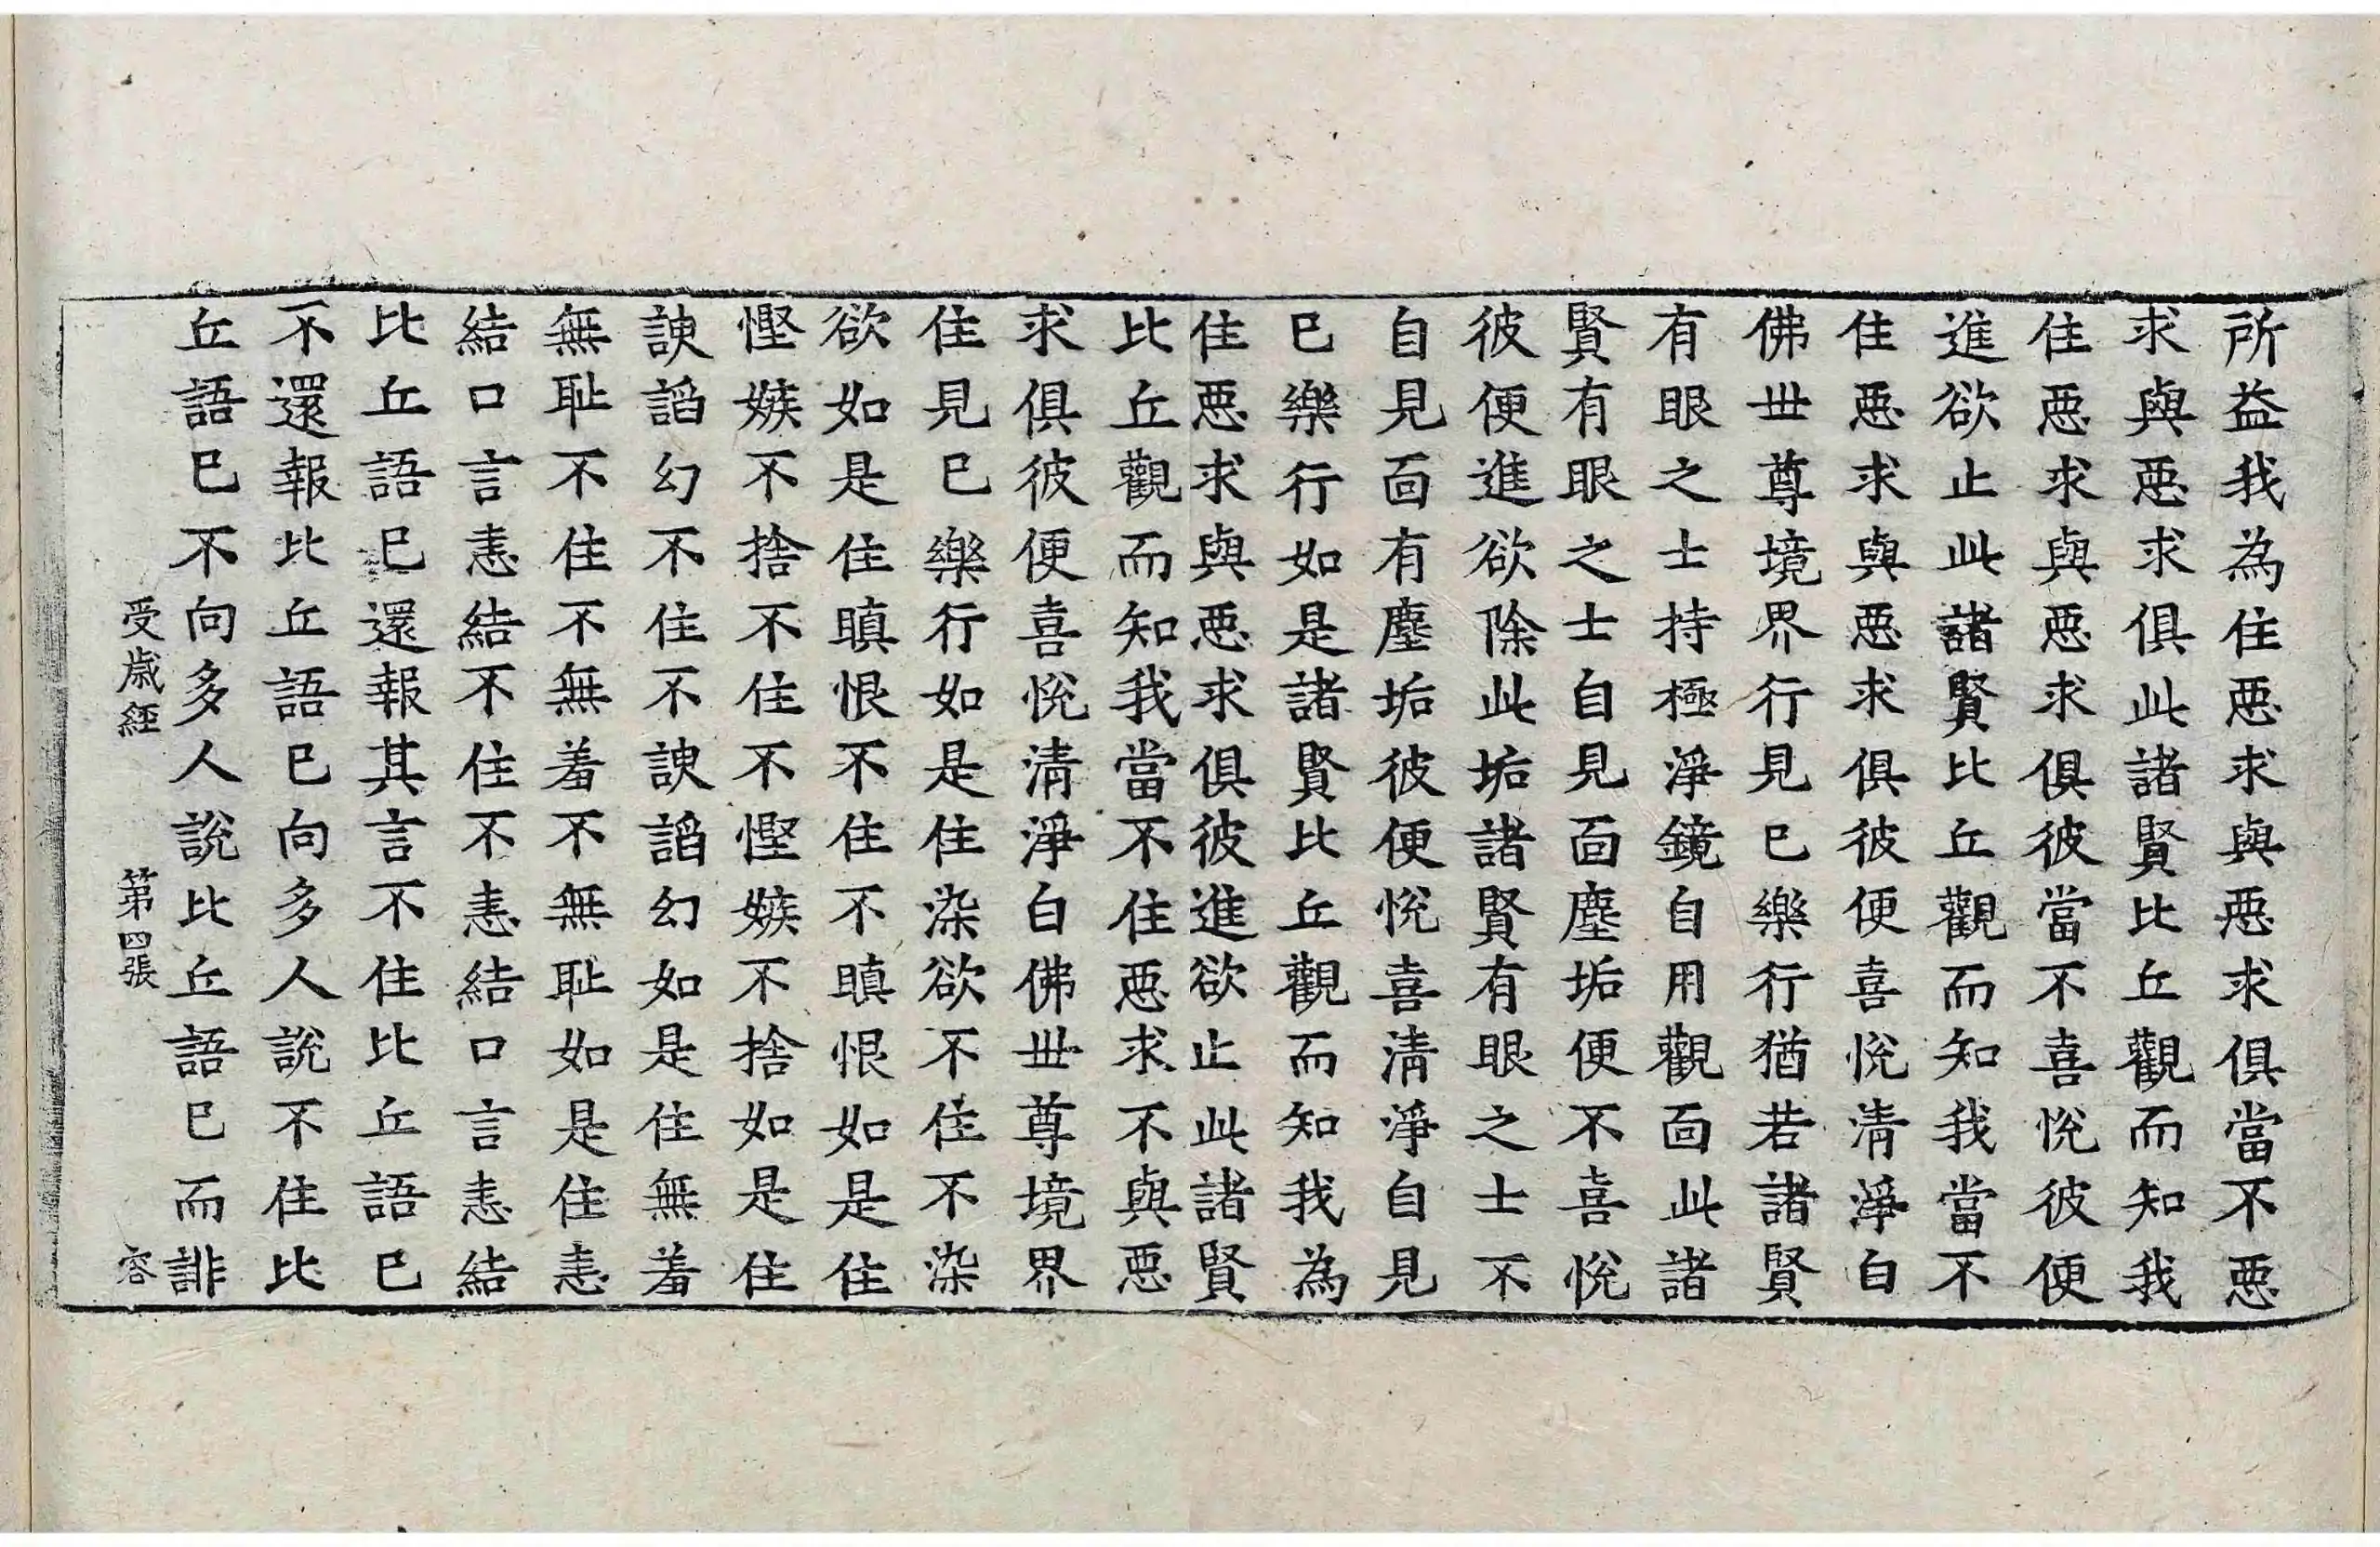 所益我為住惡求與惡求俱當不惡
求與惡求俱此諸賢比丘觀而知我
住惡求與惡求俱彼當不喜恱彼便
進欲止此諸賢比丘觀而知我當不
住惡求與惡求俱彼便喜恱清淨自
佛世尊境界行見已樂行猶若諸賢
有眼之士持極淨鏡自用觀面此諸
賢有眼之士自見面塵垢便不喜恱
彼便進欲除此垢諸賢有眼之士不
自見面有塵垢彼便恱喜清淨自見
已樂行如是諸賢比丘觀而知我為
住惡求與惡求俱彼進欲止此諸賢
比丘觀而知我當不住惡求不與惡
求俱彼便喜恱清淨白佛世尊境界
住見已樂行如是住染欲不住不染
欲如是住瞋恨不住不瞋恨如是住
慳嫉不捨不住不慳嫉不捨如是住
諛諂幻不住不諛諂幻如是住無羞
無恥不住不無羞不無恥如是住恚
結口言恚結不住不恚結口言恚結
比丘語已還報其言不住比丘語已
不還報比丘語已向多人說不住比
丘語已不向多人說比丘語已而誹
受歲經 第四張 容